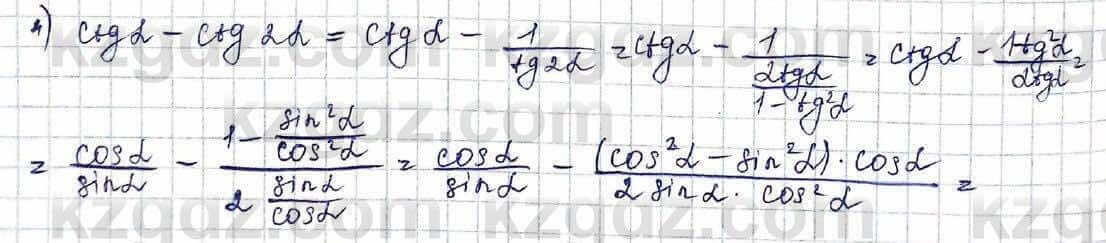 4) ctg α − ctg 2α = ctg α − 1/(tg 2α) = ctg α − 1/((2tg α)/(1 − tg²α)) = ctg α − (1−tg²α)/(2tg α) =
= (cos α)/(sin α) − (1 − (sin²α)/(cos²α))/(2 (sin α)/(cos α)) = (cos α)/(sin α) − ((cos²α − sin²α) · cos α)/(2 sin α · cos²α) =
kzgdz.com